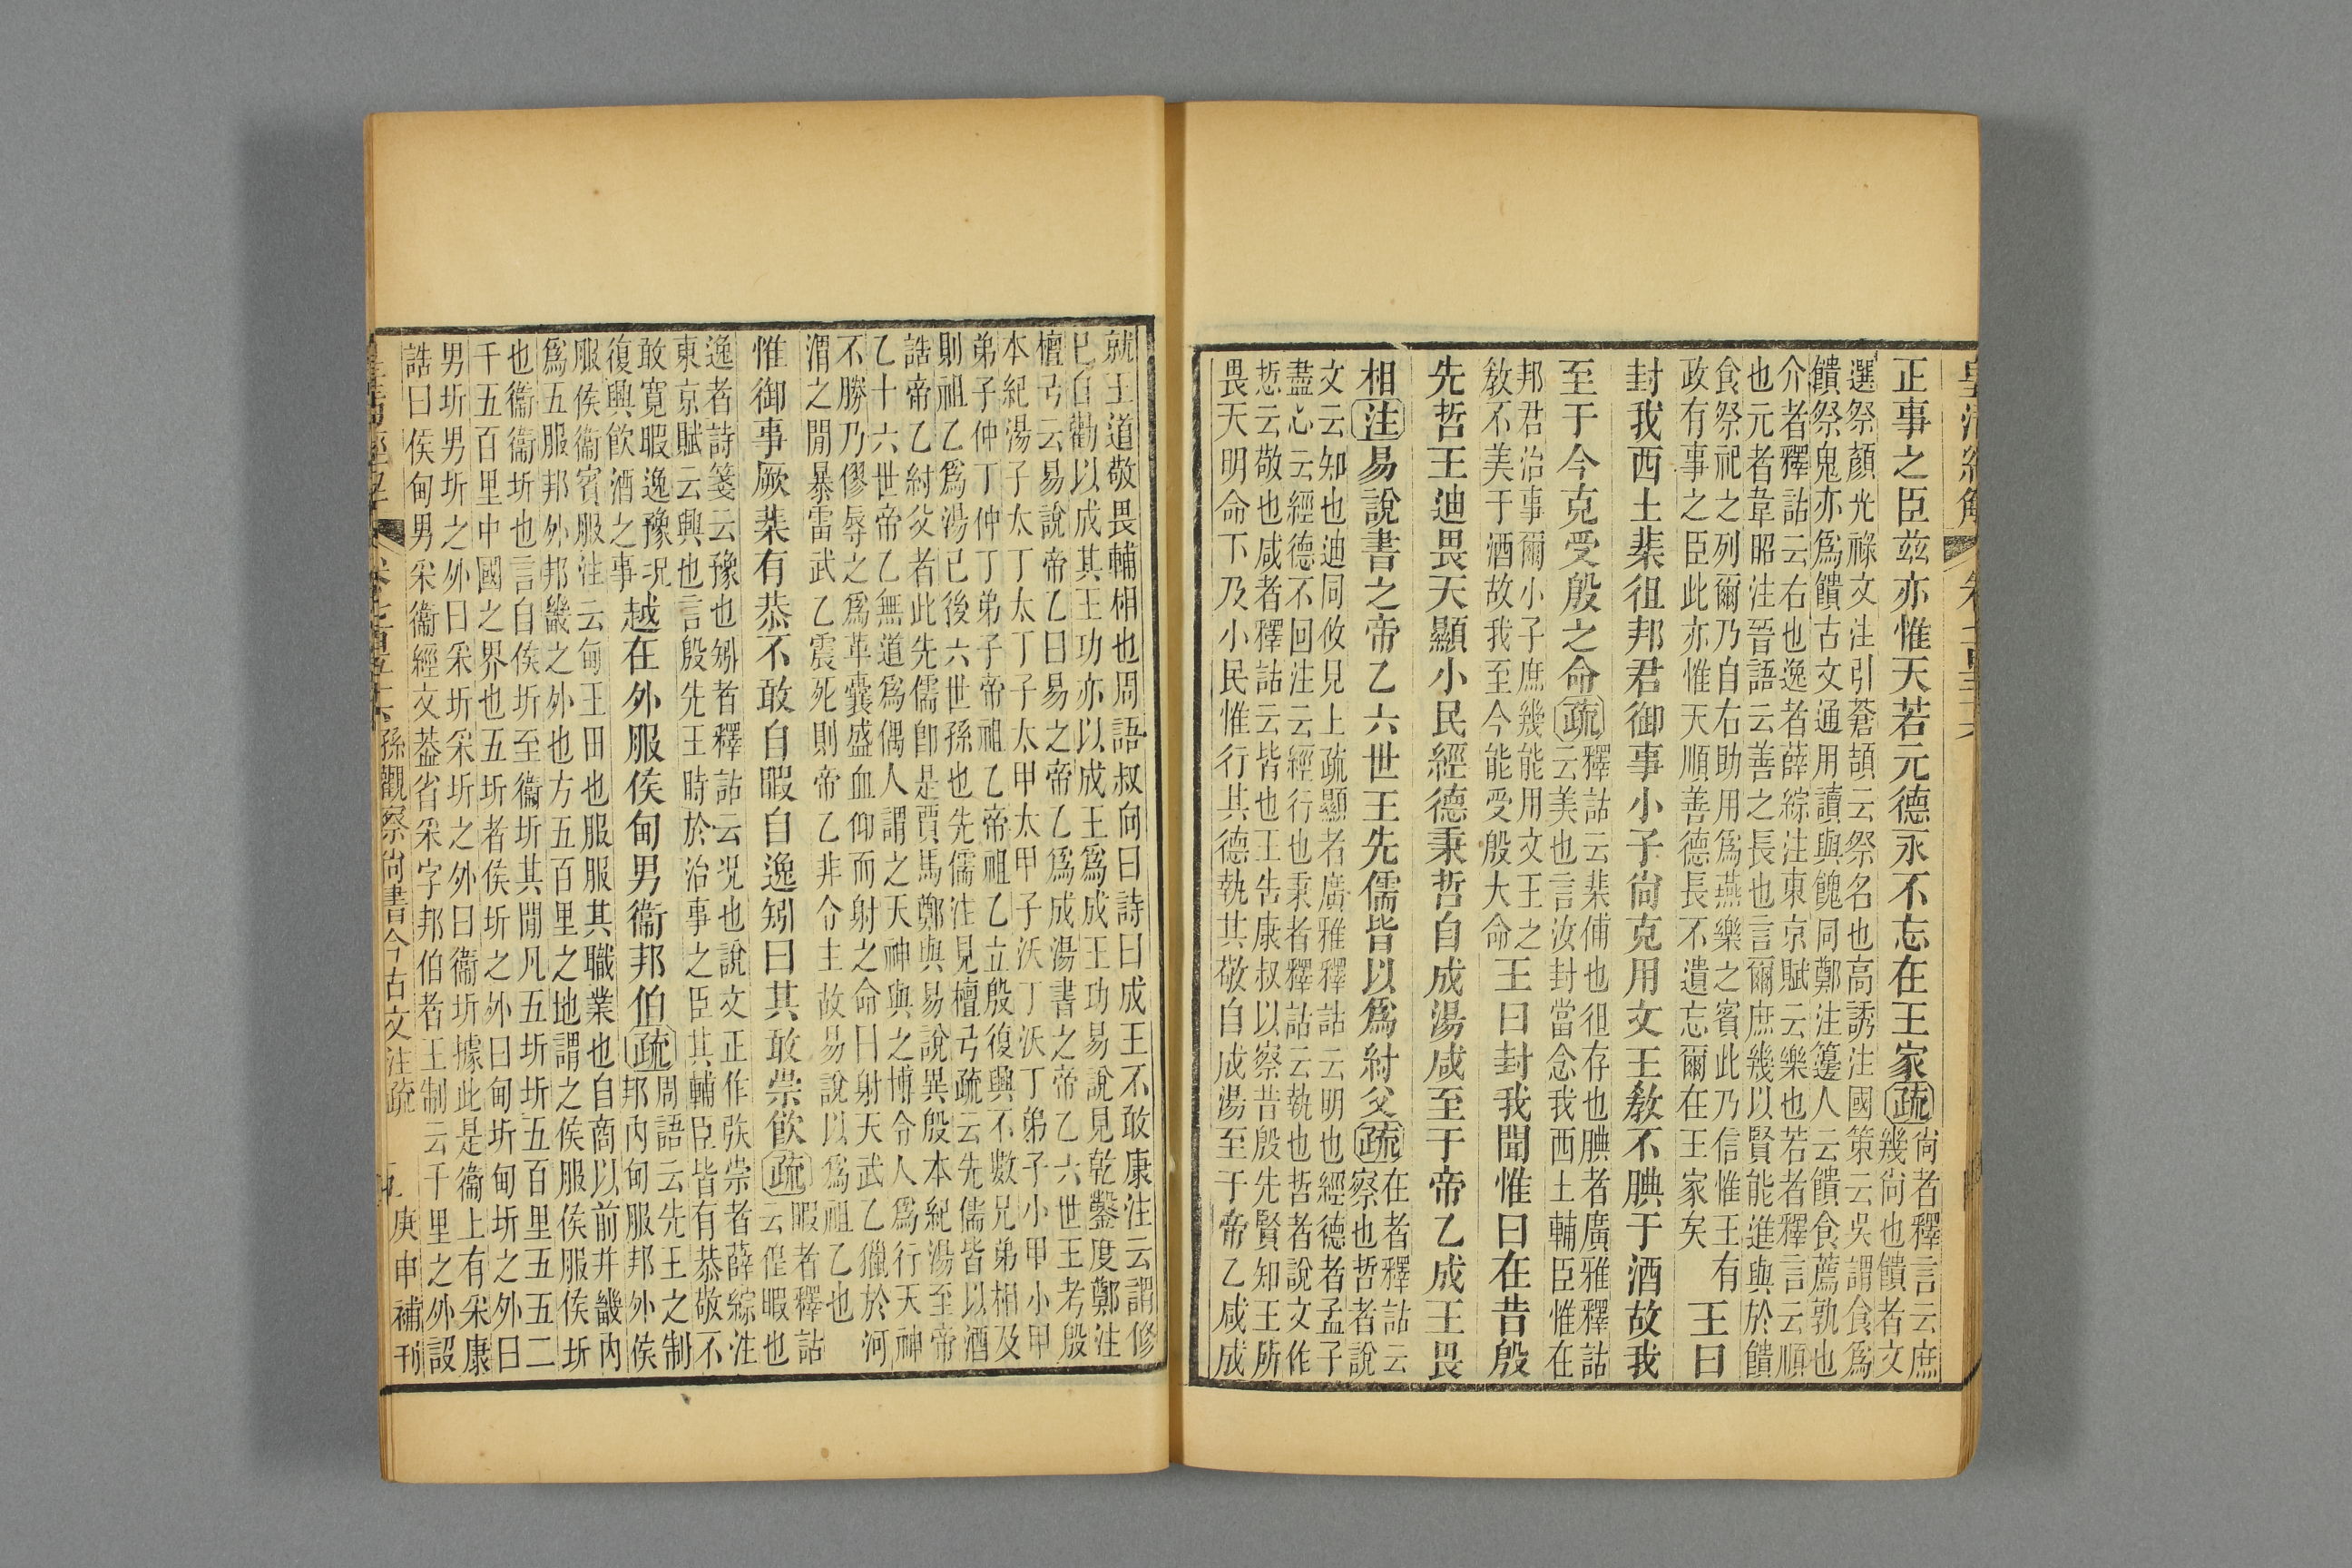 皇清經解 卷七百四十六
正事之臣茲亦惟天若元德永不忘在王家疏尚者釋言云庶
幾尚也饋者文
選祭顏光祿文注引蒼頡云祭名也高誘注國策云吳謂食爲
饋祭鬼亦爲饋古文通用讀與餽同鄭注籩人云饋食薦孰也
介者釋詁云右也逸者薛綜注東京賦云樂也若者釋言云順
也元者韋昭注晉語云善之長也言爾庶幾以賢能進與於饋
食祭祀之列爾乃自右助用爲燕樂之賓此乃信惟王有
政有事之臣此亦惟天順善德長不遺忘爾在王家矣 王曰
封我西土棐徂邦君御事小子尚克用文王敎不腆于酒故我
至于今克受殷之命疏釋詁云棐俌也徂存也腆者廣雅釋詁
云美也言汝封當念我西土輔臣惟在
邦君治事爾小子庶幾能用文王之
敎不美于酒故我至今能受殷大命 王曰封我聞惟曰在昔殷
先哲王迪畏天顯小民經德秉哲自成湯咸至于帝乙成王畏
相注易說書之帝乙六世王先儒皆以爲紂父疏在者釋詁云
察也哲者說
文云知也迪同攸見上疏顯者廣雅釋詁云明也經德者孟子
盡心云經德不回注云經行也秉者釋詁云執也哲者說文作
悊云敬也咸者釋詁云皆也王告康叔以察昔殷先賢知王所
畏天明命下乃小民惟行其德執其敬自成湯至于帝乙咸成
就王道敬畏輔相也周語叔向曰詩曰成王不敢康注云謂修
已自勸以成其王功亦以成王爲成王功易說見乾鑿度鄭注
檀弓云易說帝乙曰易之帝乙爲成湯書之帝乙六世王考殷
本紀湯子太丁太丁子太甲太甲子沃丁沃丁弟子小甲小甲
弟子仲丁仲丁弟子帝祖乙帝祖乙立殷復興不數兄弟相及
則祖乙爲湯已後六世孫也先儒注見檀弓疏云先儒皆以酒
誥帝乙紂父者此先儒卽是賈馬鄭與易說異殷本紀湯至帝
乙十六世帝乙無道爲偶人謂之天神與之博令人爲行天神
不勝乃僇辱之爲革囊盛血仰而射之命曰射天武乙獵於河
渭之閒暴雷武乙震死則帝乙非令主故易說以爲祖乙也
惟御事厥棐有恭不敢自暇自逸矧曰其敢崇飮疏暇者釋詁
云偟暇也
逸者詩箋云豫也矧者釋詁云況也說文正作矤崇者薛綜注
東京賦云興也言殷先王時於治事之臣其輔臣皆有恭敬不
敢寬暇逸豫況
復興飮酒之事 越在外服侯甸男衞邦伯疏周語云先王之制
邦內甸服邦外侯
服侯衞賓服注云甸王田也服服其職業也自商以前并畿內
爲五服邦外邦畿之外也方五百里之地謂之侯服侯服侯圻
也衞衞圻也言自侯圻至衞圻其閒凡五圻圻五百里五五二
千五百里中國之界也五圻者侯圻之外曰甸圻甸圻之外曰
男圻男圻之外曰采圻采圻之外曰衞圻據此是衞上有采康
誥曰侯甸男采衞經文葢省采字邦伯者王制云千里之外設
孫觀察尚書今古文注疏 庚申補刊